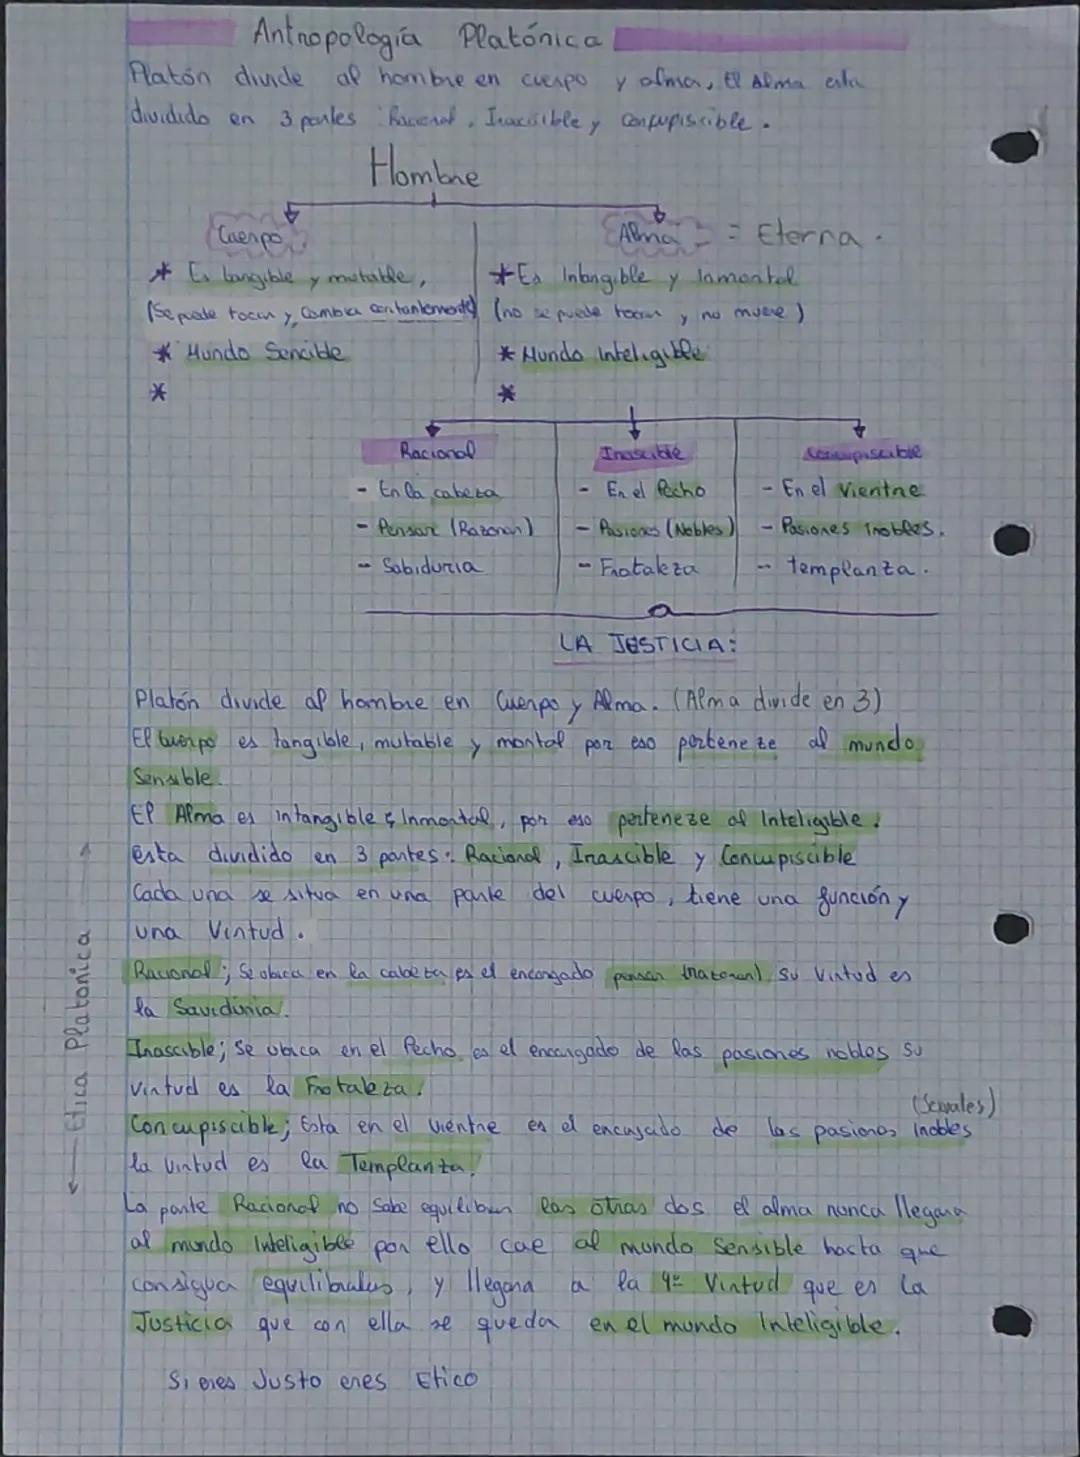 Antropología Platónica
Platón divide al hombre en cuerpo y alma, El Alma esta
dividido en 3 partes: Racional, Irascible y Concupiscible.
Hombre
Cuerpo
Alma = Eterna.
* Es tangible y mutable,
(Se puede tocar y cambia contantemente)
* Mundo Sencible
*
* Es Intangible y Inmortal
(no se puede tocar y no muere)
* Mundo Inteligible
*
Racional
- En la cabeza
- Pensar (Razonar)
- Sabiduria
Irascible
- En el Pecho
- Pasiones (Nobles)
- Frotaleza
Concupiscible
- En el Vientre
- Pasiones inobles.
- templanza.
LA JUSTICIA:
Platón divide al hombre en Cuerpo y Alma. (Alma divide en 3)
El cuerpo es tangible, mutable y mortal por eso perteneze al mundo
Sensible.
El Alma es intangible e Inmortal, por eso perteneze al Inteligible.
esta dividido en 3 partes: Racional, Irascible y Concupiscible
Cada una se situa en una parte del cuerpo, tiene una función y
una Virtud.
Racional; Se ubica en la cabeza es el encargado pensar (razonar) su virtud es
la Saviduria.
Irascible; Se ubica en el Pecho es el encargado de las pasiones nobles su
virtud es la Frotaleza.
(Sexuales)
Concupiscible; Esta en el vientre es el encargado de las pasiones inobles
la virtud es la Templanza.
La parte Racional no sabe equilibrar las otras dos el alma nunca llegara
al mundo Inteligible por ello cae al mundo Sensible hasta que
consigua equilibralas, y llegara a la 4ª Virtud que es la
Justicia que con ella se queda en el mundo Inteligible.
Si eres Justo eres Etico
Etica Platonica